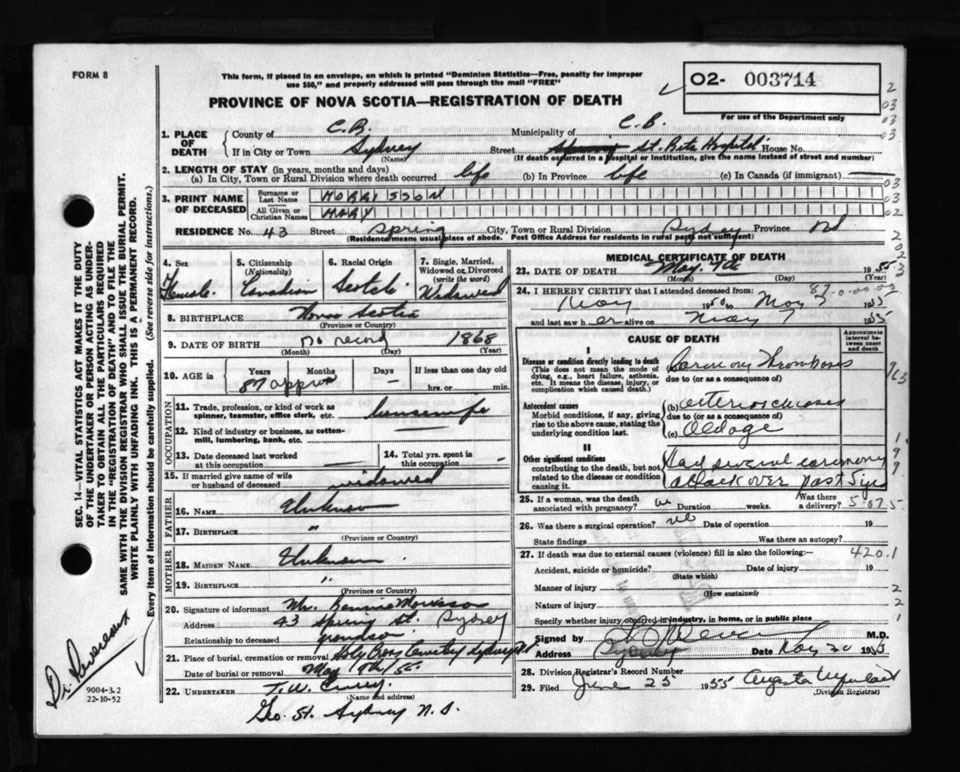 FORM 8
This form, if placed in an envelope, on which is printed "Dominion Statistics—Free, penalty for improper
use $50," and properly addressed will pass through the mail "FREE"
O2- 003714
For use of the Department only
PROVINCE OF NOVA SCOTIA—REGISTRATION OF DEATH
1. PLACE OF DEATH County of C.B. Municipality of C.B.
If in City or Town Sydney Street St. Rita Hospital House No.
(Name) (If death occurred in a hospital or institution, give the name instead of street and number)
2. LENGTH OF STAY (in years, months and days)
(a) In City, Town or Rural Division where death occurred life (b) In Province life (c) In Canada (if immigrant) —
3. PRINT NAME OF DECEASED Surname or Last Name MORRISSON
All Given or Christian Names MARY
RESIDENCE No. 43 Street Spring City, Town or Rural Division Sydney Province NS
(Residence means usual place of abode. Post Office Address for residents in rural parts not sufficient)
4. Sex Female
5. Citizenship (Nationality) Canadian
6. Racial Origin Scotch
7. Single, Married, Widowed or Divorced (write the word) Widowed
8. BIRTHPLACE Nova Scotia
(Province or Country)
9. DATE OF BIRTH no record 1868
(Month) (Day) (Year)
10. AGE Years Months Days If less than one day
87 approx — hrs. or min.
OCCUPATION
11. Trade, profession, or kind of work as spinner, teamster, office clerk, etc. housewife
12. Kind of industry or business, as cotton-mill, lumbering, bank, etc. —
13. Date deceased last worked at this occupation —
14. Total yrs. spent in this occupation -
15. If married give name of wife or husband of deceased widowed
FATHER
16. NAME Unknown
17. BIRTHPLACE "
(Province or Country)
MOTHER
18. MAIDEN NAME Unknown
19. BIRTHPLACE "
(Province or Country)
20. Signature of informant Mr. Morrison
Address 43 Spring St. Sydney
Relationship to deceased grandson
21. Place of burial, cremation or removal Holy Cross Cemetery Sydney
Date of burial or removal May 10th 55
22. UNDERTAKER T.W. Curry
(Name and address)
Geo. St. Sydney N.S.
MEDICAL CERTIFICATE OF DEATH
23. DATE OF DEATH May 7th 1955
(Month) (Day) (Year)
24. I HEREBY CERTIFY that I attended deceased from:
May 1950 to May 7 1955
and last saw her alive on May 7 1955
CAUSE OF DEATH
Approximate interval between onset and death
I
Disease or condition directly leading to death
(This does not mean the mode of dying, e.g., heart failure, asthenia, etc. It means the disease, injury, or complication which caused death.)
Coronary Thrombosis
due to (or as a consequence of)
Antecedent causes
Morbid conditions, if any, giving rise to the above cause, stating the underlying condition last.
(b) arteriosclerosis
due to (or as a consequence of)
(c) Old age
II
Other significant conditions
contributing to the death, but not related to the disease or condition causing it.
Had several coronary
attack over past
25. If a woman, was the death associated with pregnancy? no Duration weeks. Was there a delivery?
26. Was there a surgical operation? no Date of operation 19
State findings Was there an autopsy?
27. If death was due to external causes (violence) fill in also the following:— 420.1
Accident, suicide or homicide? Date of injury 19
(State which)
Manner of injury
(How sustained)
Nature of injury
Specify whether injury occurred in industry, in home, or in public place
Signed by M.D.
Address Sydney Date May 20 1955
28. Division Registrar's Record Number
29. Filed June 25 1955 Augusta
(Division Registrar)
SEC. 14—VITAL STATISTICS ACT MAKES IT THE DUTY
OF THE UNDERTAKER OR PERSON ACTING AS UNDER-
TAKER TO OBTAIN ALL THE PARTICULARS REQUIRED
IN THE "REGISTRATION OF DEATH" AND TO FILE THE
SAME WITH THE DIVISION REGISTRAR WHO SHALL ISSUE THE BURIAL PERMIT.
WRITE PLAINLY WITH UNFADING INK. THIS IS A PERMANENT RECORD.
Every item of information should be carefully supplied. (See reverse side for instructions.)
Dr. Devereaux
9004-3.2
22-10-52